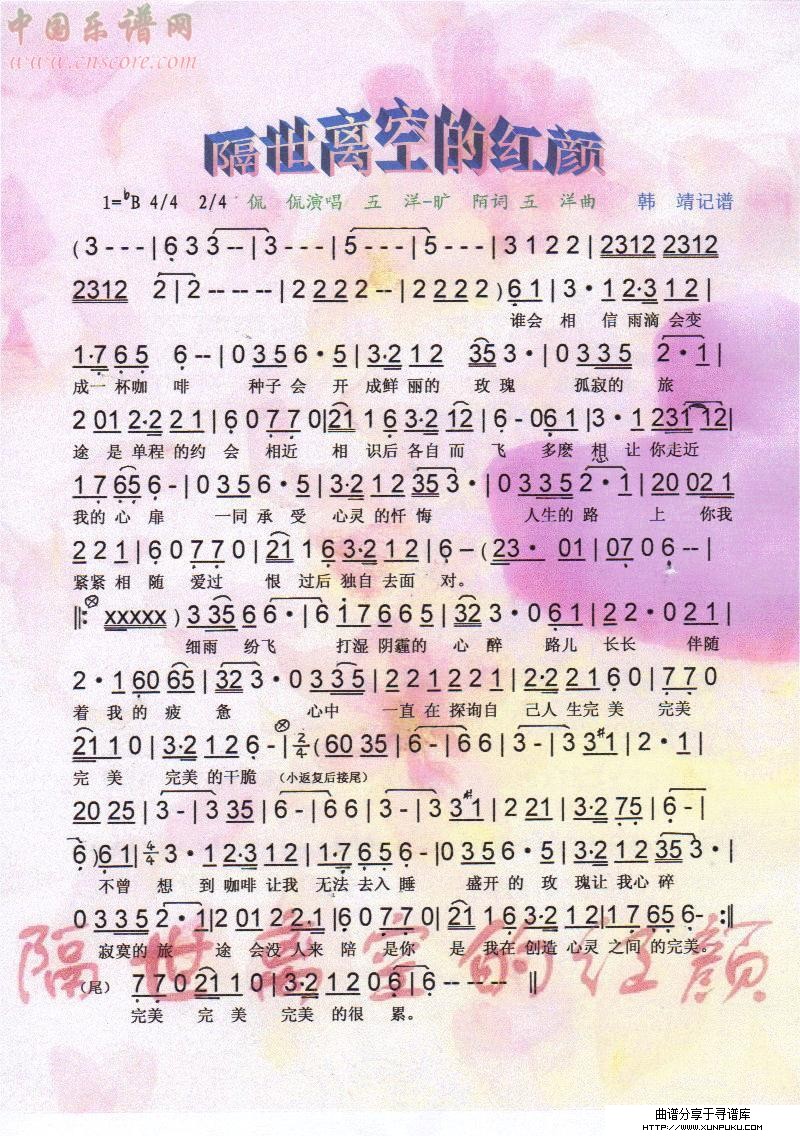 中国乐谱网
www.cnscore.com
隔世离空的红颜
1=♭B 4/4 2/4 侃 侃演唱 五 洋-旷 陌词 五 洋曲 韩 靖记谱
(3 - - - | 6 3 3 - - | 3 - - - | 5 - - - | 5 - - - | 3 1 2 2 | 2312 2312
2312 2 | 2 - - - - | 2 2 2 2 - - | 2 2 2 2 ) 6 1 | 3 · 1 2·3 1 2 |
谁会 相 信 雨滴 会变
1·7 6 5 6 - - | 0 3 5 6 · 5 | 3·2 1 2 35 3 · | 0 3 3 5 2 · 1 |
成一 杯咖 啡 种子 会 开 成鲜 丽的 玫 瑰 孤寂的 旅
2 01 2·2 2 1 | 6 0 7 7 0 | 21 1 6 3·2 12 | 6 - 0 6 1 | 3 · 1 231 12 |
途 是 单程 的约 会 相近 相 识后 各自 而 飞 多麽 想 让 你走近
1 7 65 6 - | 0 3 5 6 · 5 | 3·2 1 2 35 3 · | 0 3 3 5 2 · 1 | 20 02 1
我的 心 扉 一同 承 受 心灵 的忏 悔 人生的 路 上 你我
2 2 1 | 6 0 7 7 0 | 21 1 6 3·2 12 | 6 – ( 23 · 01 | 07 0 6 - - |
紧紧 相 随 爱过 恨 过后 独自 去面 对。
‖: xxxxx ) 3 35 6 6 · | 6 1 7 6 6 5 | 32 3 · 0 6 1 | 2 2 · 0 2 1 |
细雨 纷飞 打湿 阴霾的 心 醉 路儿 长长 伴随
2 · 1 60 65 | 32 3 · 0 3 3 5 | 2 2 1 2 2 1 | 2·2 2 1 6 0 | 7 7 0
着 我 的 疲 惫 心中 一直 在 探询自 己人 生完 美 完美
21 1 0 | 3·2 1 2 6 - | 2/4 ( 60 35 | 6 - | 6 6 | 3 - | 3 3 #1 | 2 · 1 |
完 美 完美 的干脆 (小返复后接尾)
20 25 | 3 - | 3 35 | 6 - | 6 6 | 3 - | 3 3 #1 | 2 21 | 3·2 75 | 6 - |
6 ) 6 1 | 4/4 3 · 1 2·3 1 2 | 1·7 6 5 6 - | 0 3 5 6 · 5 | 3·2 1 2 35 3 · |
不曾 想 到 咖啡 让我 无法 去入 睡 盛开 的 玫 瑰让 我心 碎
0 3 3 5 2 · 1 | 2 01 2 2·1 | 6 0 7 7 0 | 21 1 6 3·2 12 | 1 7 65 6 - :‖
寂寞的 旅 途 会没 人来 陪 是你 是 我在 创造 心灵 之间 的完美。
隔世离空的红颜
(尾) 7 7 0 21 1 0 | 3·2 1 2 0 6 | 6 - - - - ‖
完美 完 美 完美 的很 累。
曲谱分享于寻谱库
HTTP://WWW.XUNPUKU.COM